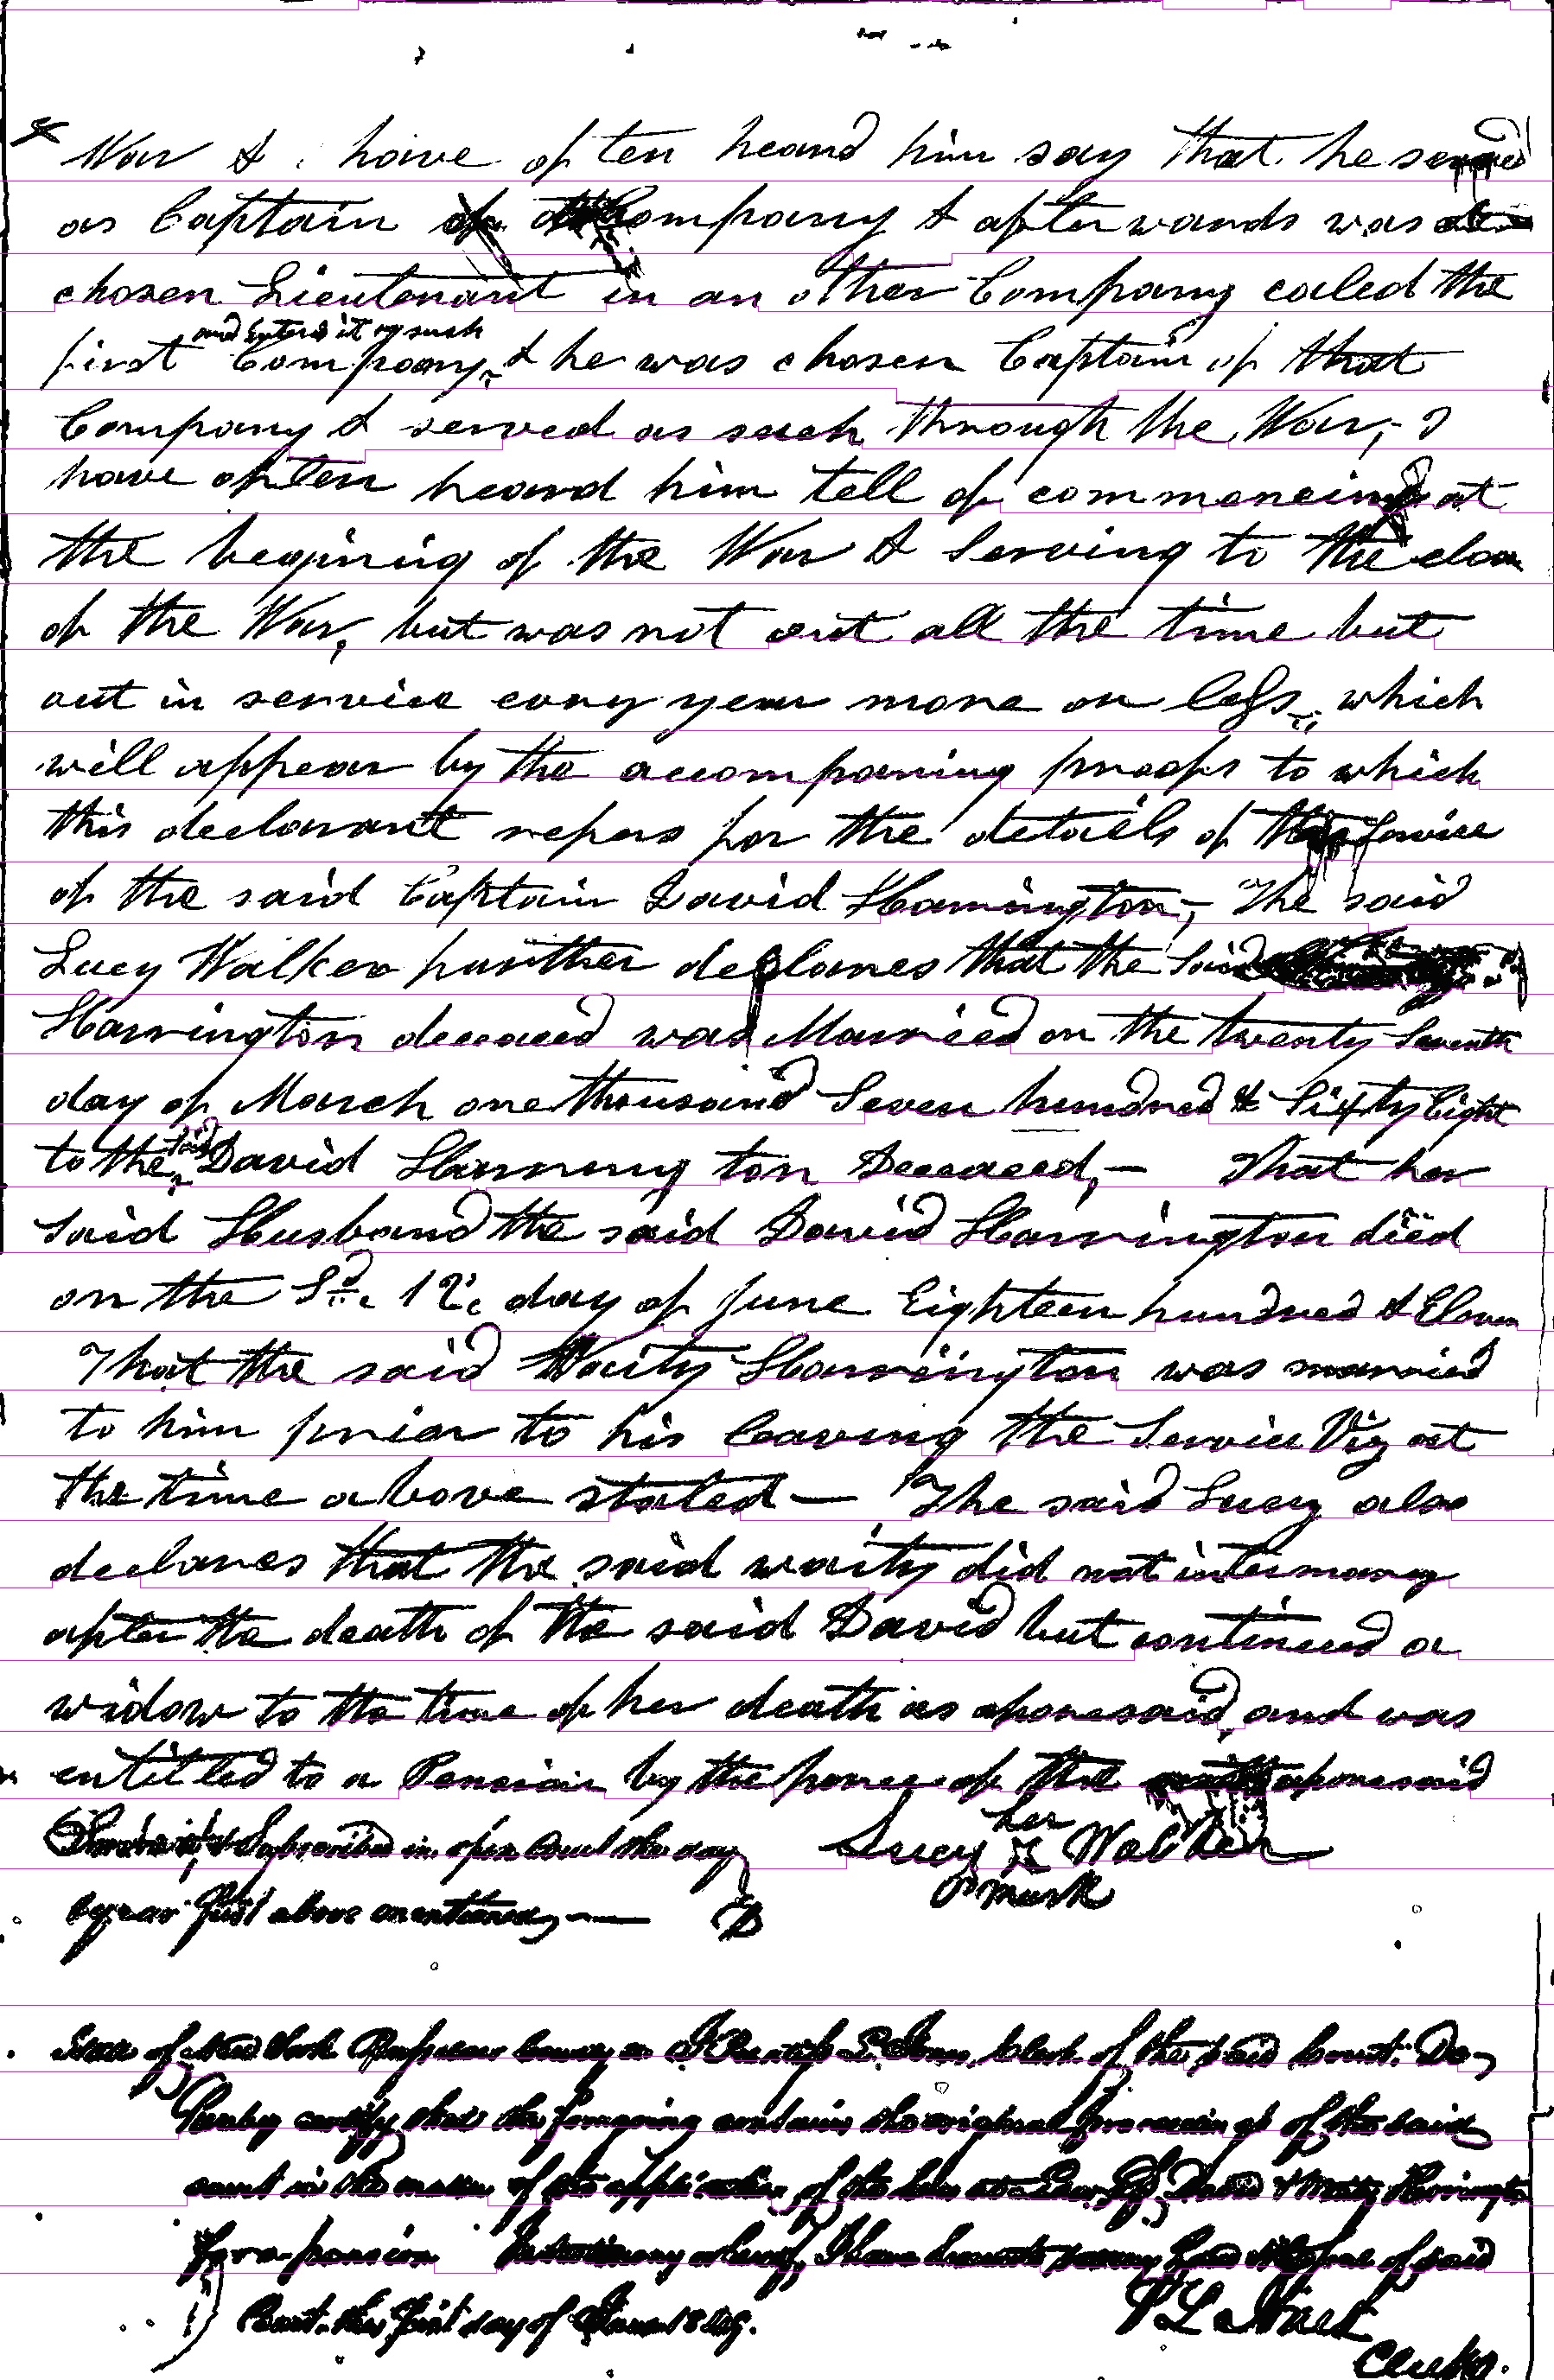 War & have often heard him say that he served
as Captain of a Company & afterwards was
chosen Lieutenant in an other Company caled the
and entered it as such
first Company, & he was chosen Captain of that
Company & served as such through the War, - I
have often heard him tell of commencing at
the begining of the War & Serving to the close
of the War, but was not out all the time but
out in service evry year more or less, which
will appear by the accompaning proofs to which
this declarant refers for the details of the Service
of the said Captain David Harrington, - The said
Lucy Walker further declares that the Said
Harrington deceaced was Married on the twenty Seventh
day of March one thousand Seven hundred & Sixty Eight
to the said David Harrington Deceaced, - That her
Said Husband the said David Harrington died
on the Sd. 12. day of June Eighteen hundred & Eleven
That the said Waity Harrington was married
to him prior to his leaving the Service Viz at
the time above stated — The said Lucy also
declares that the said waity did not intermarry
after the death of the said David but continued a
widow to the time of her death as aforesaid, and was
entitled to a Pension by the force of the aforesaid
& Subscribed in open Court the day
& year first above mentioned, —
Lucy her x mark Walker
State of New York Rensselaer County ss I Clerk of the said Court Do
hereby certify that the foregoing contains the original proceedings of the said
court in the matter of the application of the heirs at Law of David & Waity Harrington
for a pension In testimony whereof, I have hereunto set my hand & seal of said
Court this first day of June 1849.
Clerk.